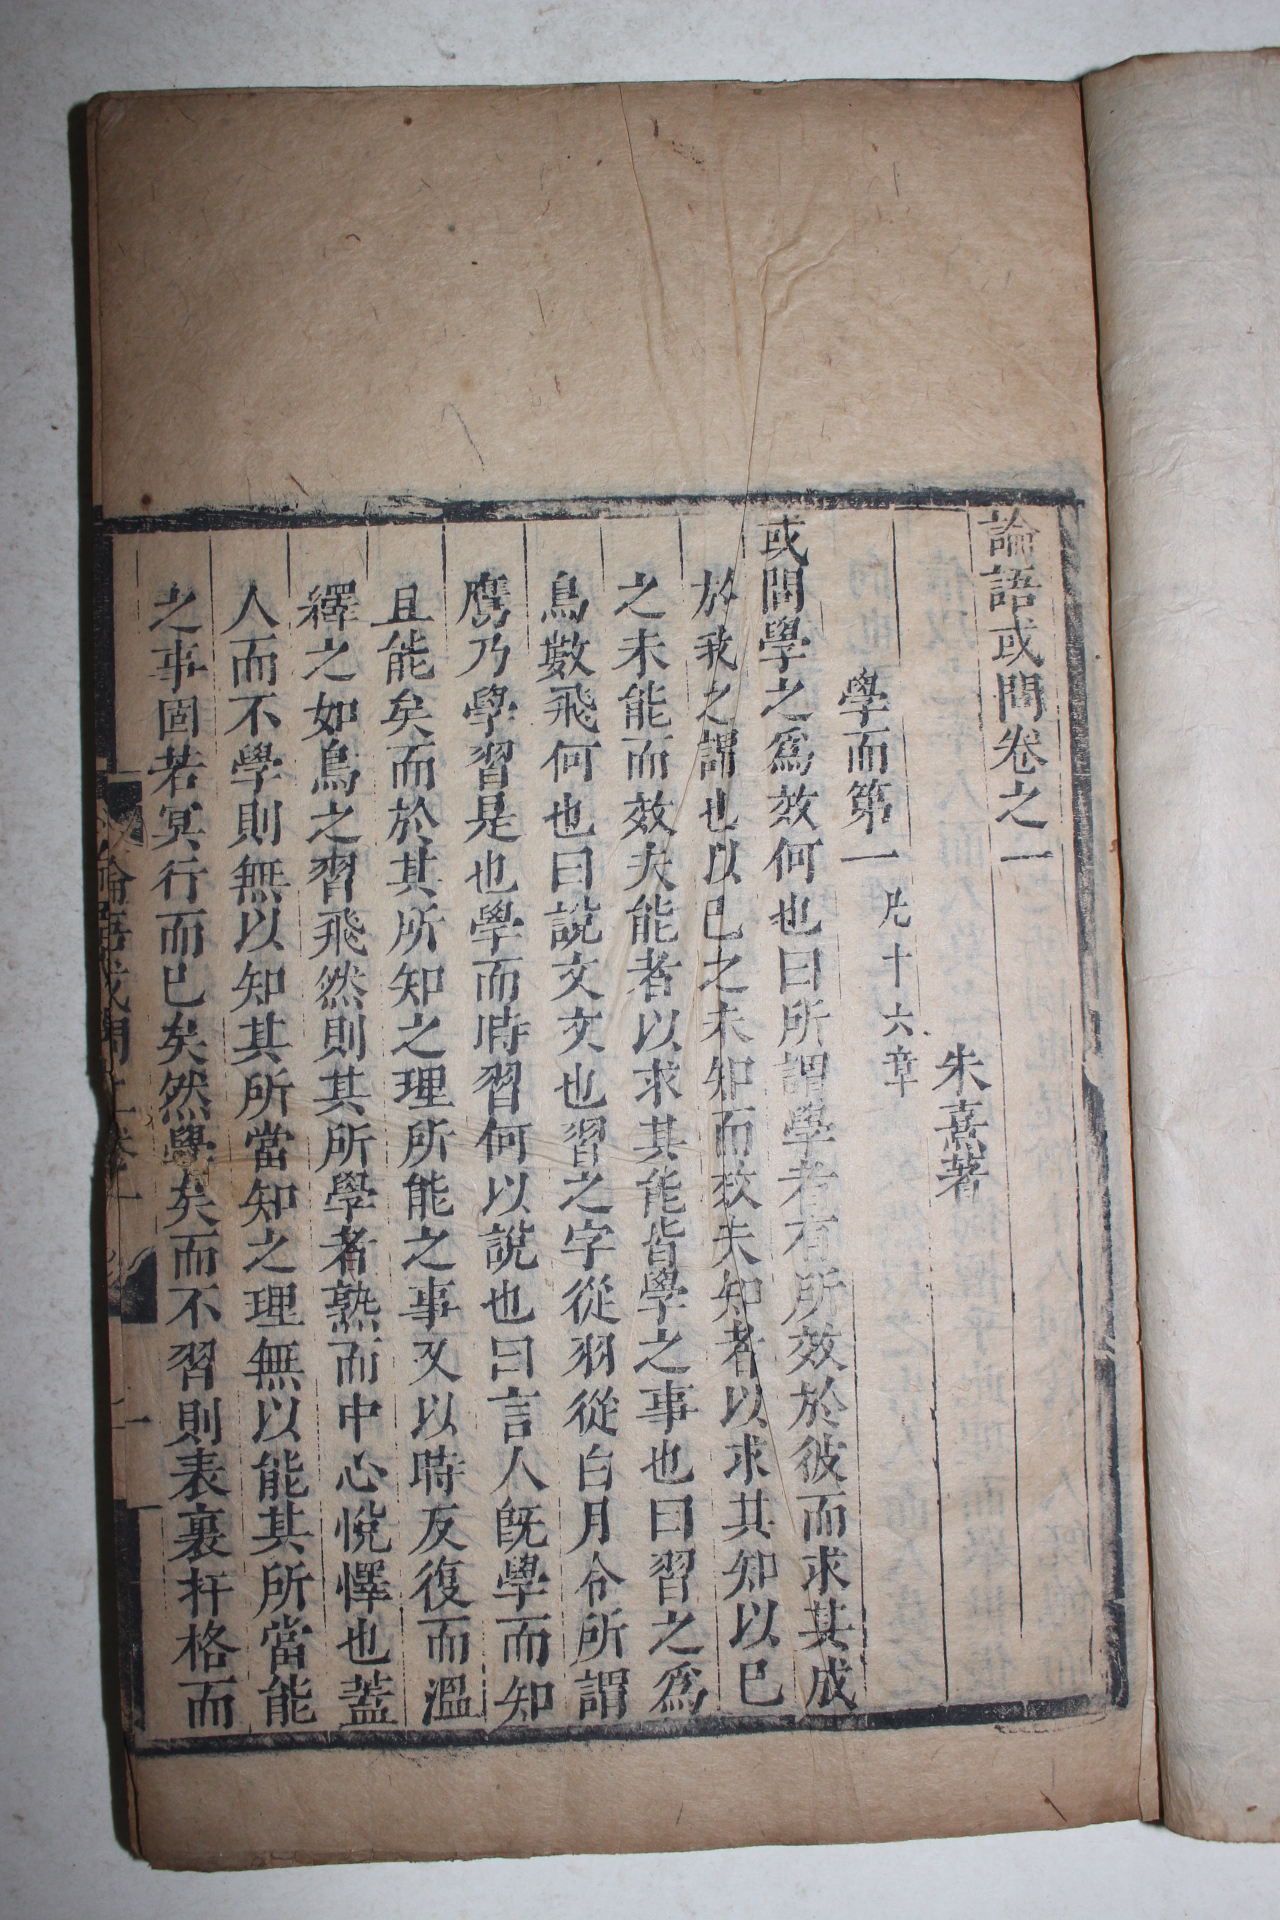 論語或問卷之一
朱熹著
學而第一 凡十六章
或問學之爲效何也曰所謂學者有所效於彼而求其成
於我之謂也以已之未知而效夫知者以求其知以已
之未能而效夫能者以求其能皆學之事也曰習之爲
鳥數飛何也曰說文文也習之字從羽從白月令所謂
鷹乃學習是也學而時習何以說也曰言人旣學而知
且能矣而於其所知之理所能之事又以時反復而溫
繹之如鳥之習飛然則其所學者熟而中心悅懌也蓋
人而不學則無以知其所當知之理無以能其所當能
之事固若冥行而已矣然學矣而不習則表裏扞格而
論語或問 卷一